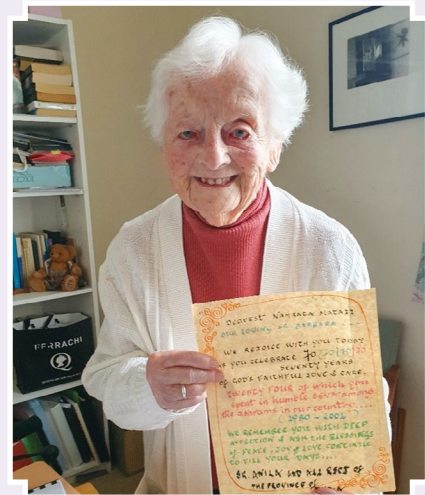 HERRACHI
DEAREST
OUR LOVING Sr. BARBARA
WE REJOICE WITH YOU TODAY
AS YOU CELEBRATE 70
SEVENTY YEARS
OF GOD'S FAITHFUL LOVE & CARE.
TWENTY FOUR of which you
spent in humble
the ashrams in our country....
WE REMEMBER YOU WITH DEEP
AFFECTION & ASK THE BLESSINGS
of PEACE, JOY & LOVE CONTINUE
TO FILL YOUR DAYS....
SR. ANILA AND ALL REST OF
THE PROVINCE OF